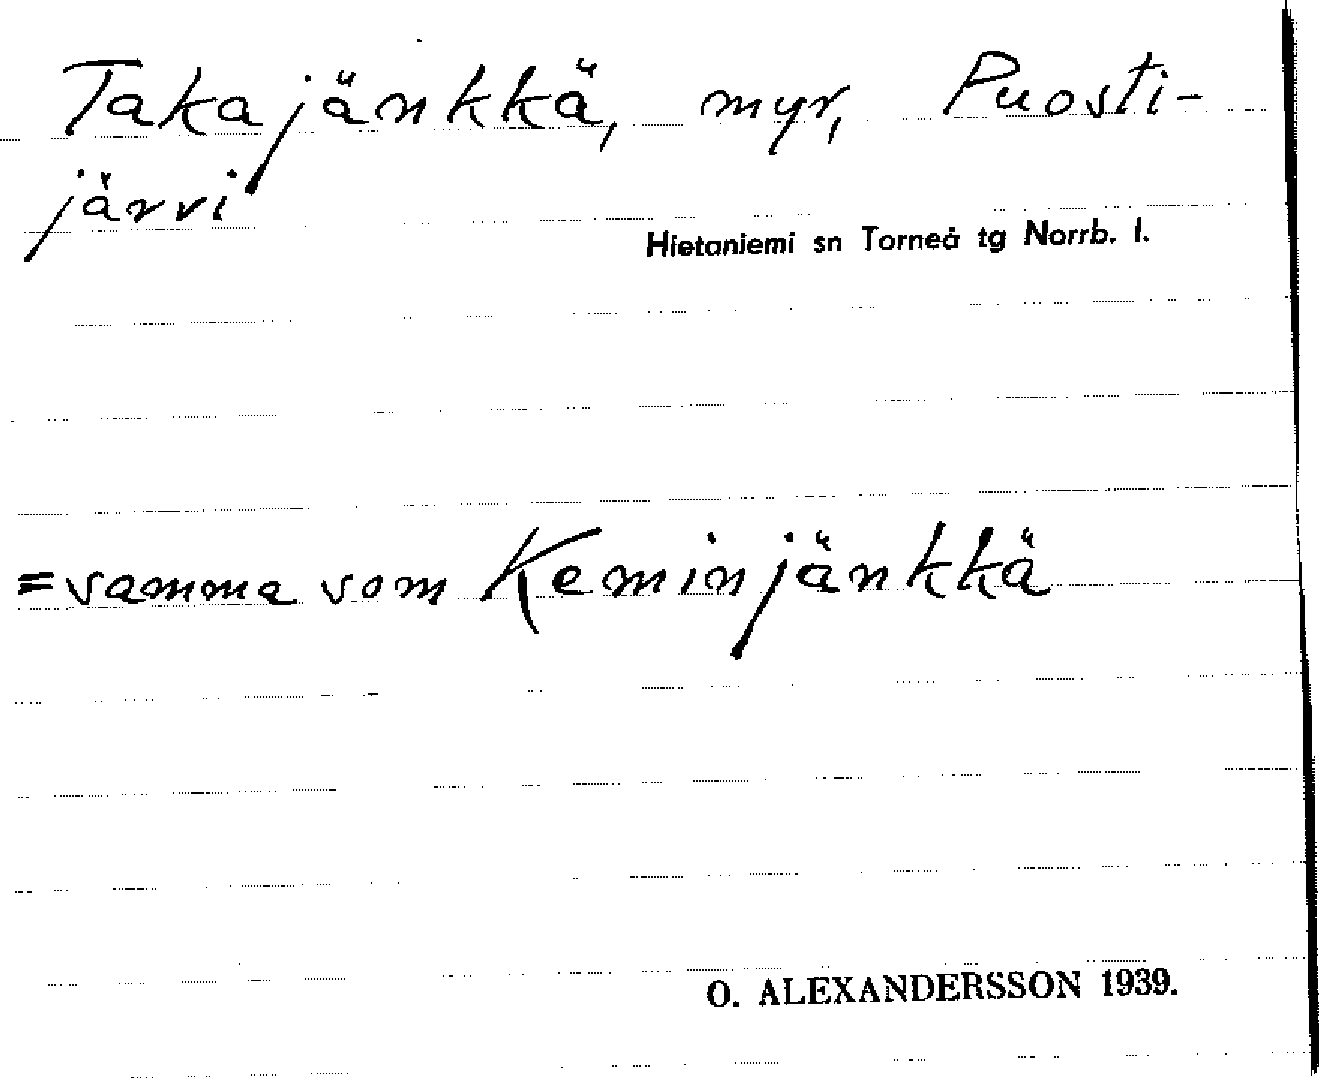 Takajänkkä, myr, Puosti-
järvi
Hietaniemi sn Torneå tg Norrb. l.
= samma som Keminjänkkä
O. ALEXANDERSSON 1939.